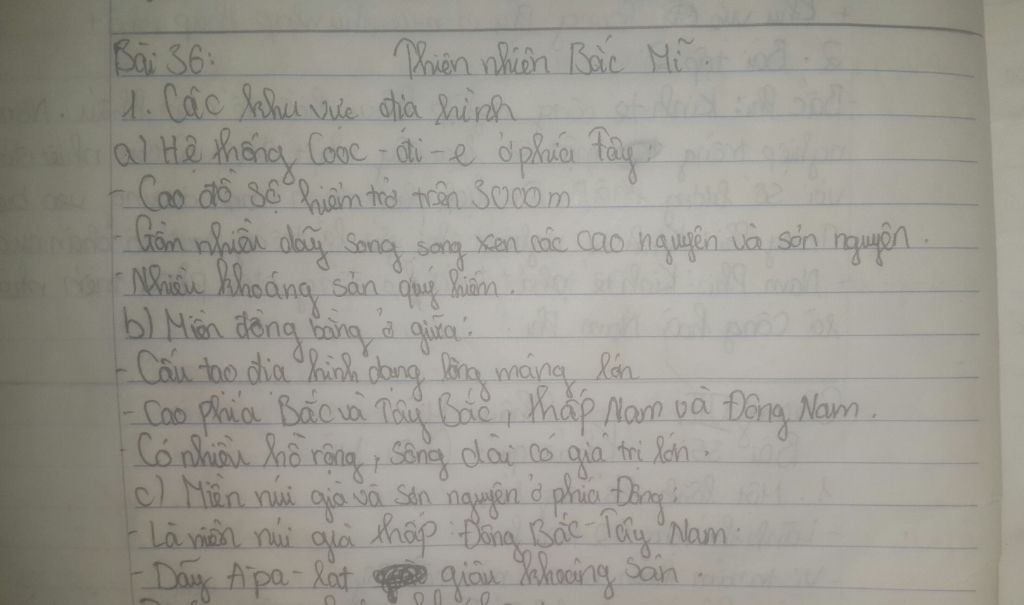 Bài 36: Thiên nhiên Bắc Mĩ.
1. Các khu vực địa hình
a) Hệ thống Cooc-đi-e ở phía Tây:
- Cao đồ sộ hiểm trở trên 3000m
- Gồm nhiều dãy song song xen các cao nguyên và sơn nguyên.
- Nhiều khoáng sản quý hiếm.
b) Miền đồng bằng ở giữa:
- Cấu tạo địa hình dạng lòng máng lớn
- Cao phía Bắc và Tây Bắc, thấp Nam và Đông Nam.
- Có nhiều hồ rộng, sông dài có giá trị lớn.
c) Miền núi già và sơn nguyên ở phía Đông:
- Là miền núi già thấp Đông Bắc-Tây Nam
- Dãy A-pa-lat giàu khoáng sản.